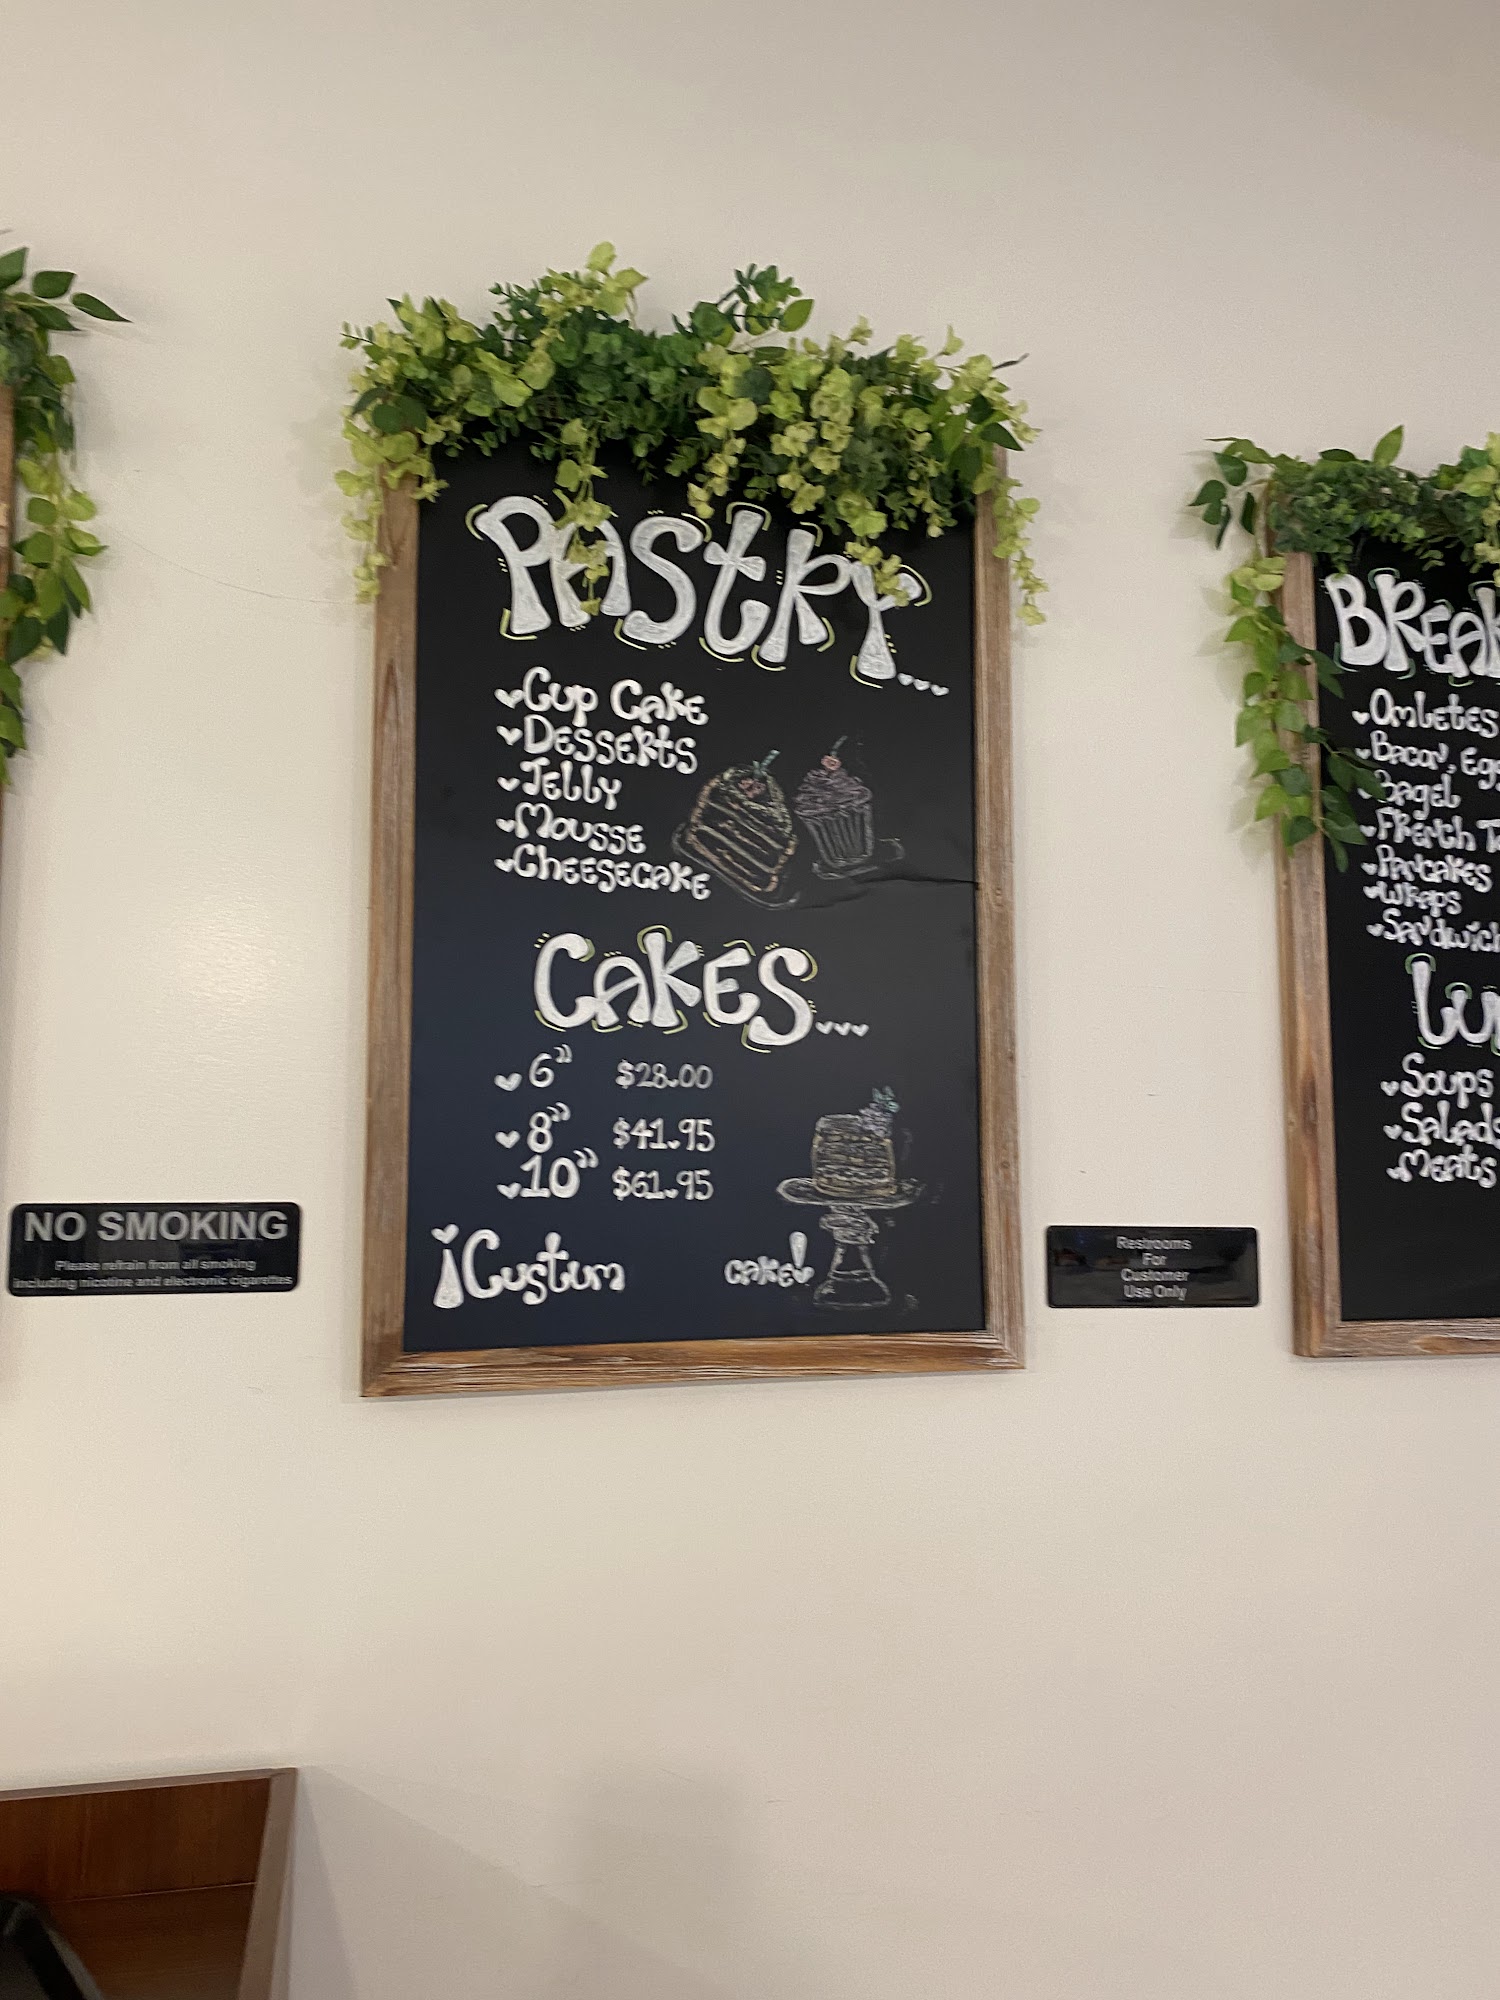 PAStRY...
Cup Cake
Desserts
Jelly
Mousse
Cheesecake
CAKES...
6" $28.00
8" $41.95
10" $61.95
¡Custum cake!
NO SMOKING
Please refrain from all smoking
including nicotine and electronic cigarettes
Restrooms
For
Customer
Use Only
Omletes
Bacon,
Bagel
Pancakes
Wraps
Soups
Salads
Meats